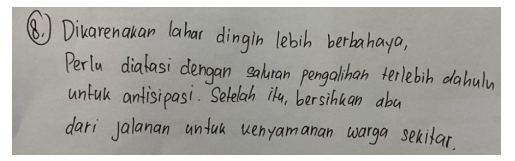 8.) Dikarenakan lahar dingin lebih berbahaya,
Perlu diatasi dengan saluran pengalihan terlebih dahulu
untuk antisipasi. Setelah itu, bersihkan abu
dari jalanan untuk kenyamanan warga sekitar.